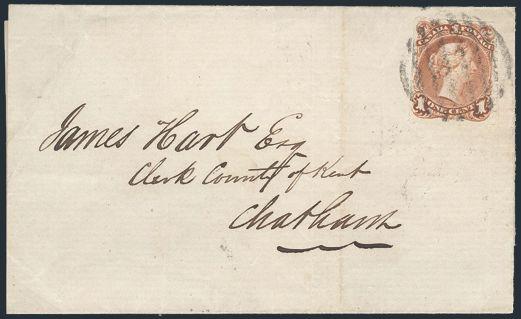 CANADA POSTAGE
1 ONE CENT 1
James Hart Esq
Clerk County of Kent
Chatham